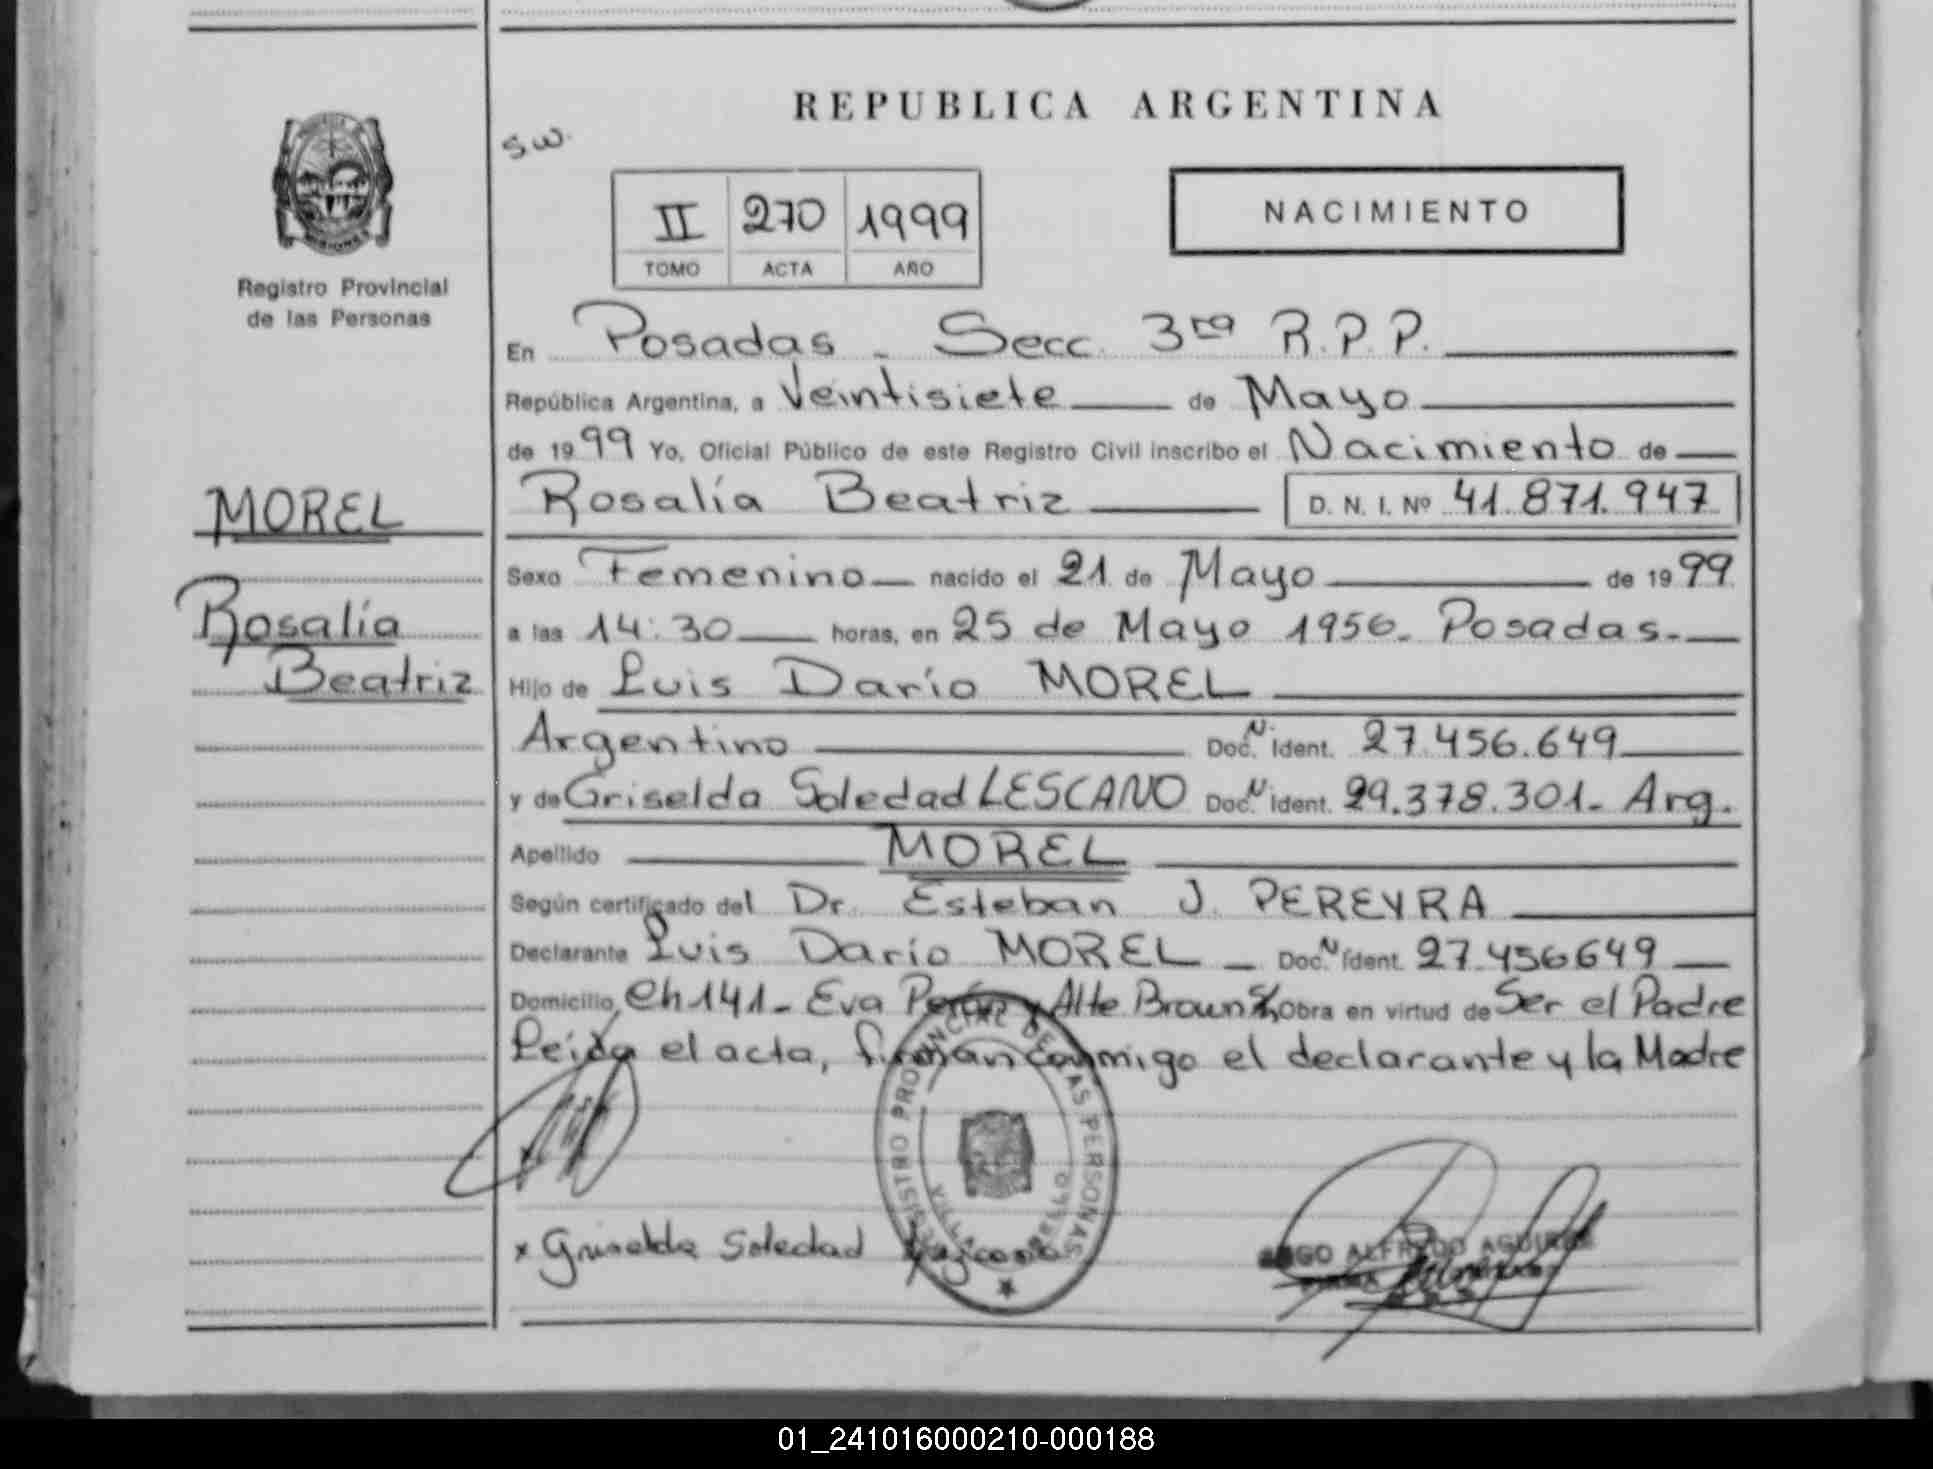 REPUBLICA ARGENTINA
s w.
II 270 1999
TOMO ACTA AÑO
NACIMIENTO
Registro Provincial
de las Personas
MISIONES
En Posadas - Secc. 3ra R.P.P.
República Argentina, a Veintisiete de Mayo
de 1999 Yo, Oficial Público de este Registro Civil inscribo el Nacimiento de
MOREL
Rosalía Beatriz D. N. I. Nº 41.871.947
Sexo Femenino nacido el 21 de Mayo de 1999
Rosalía
a las 14:30 horas, en 25 de Mayo 1956. Posadas.-
Beatriz
Hijo de Luis Darío MOREL
Argentino Doc. N. Ident. 27.456.649
y de Griselda Soledad LESCANO Doc. N. Ident. 29.378.301- Arg.
Apellido MOREL
Según certificado del Dr. Esteban J. PEREYRA
Declarante Luis Darío MOREL - Doc. N. Ident. 27.456649
Domicilio, Ch 141- Eva Perón y Alte Brown Obra en virtud de Ser el Padre
Leída el acta, firman conmigo el declarante y la Madre
REGISTRO PROVINCIAL DE LAS PERSONAS
VILLA
x Griselda Soledad
ALFREDO AGUIRRE
01_241016000210-000188